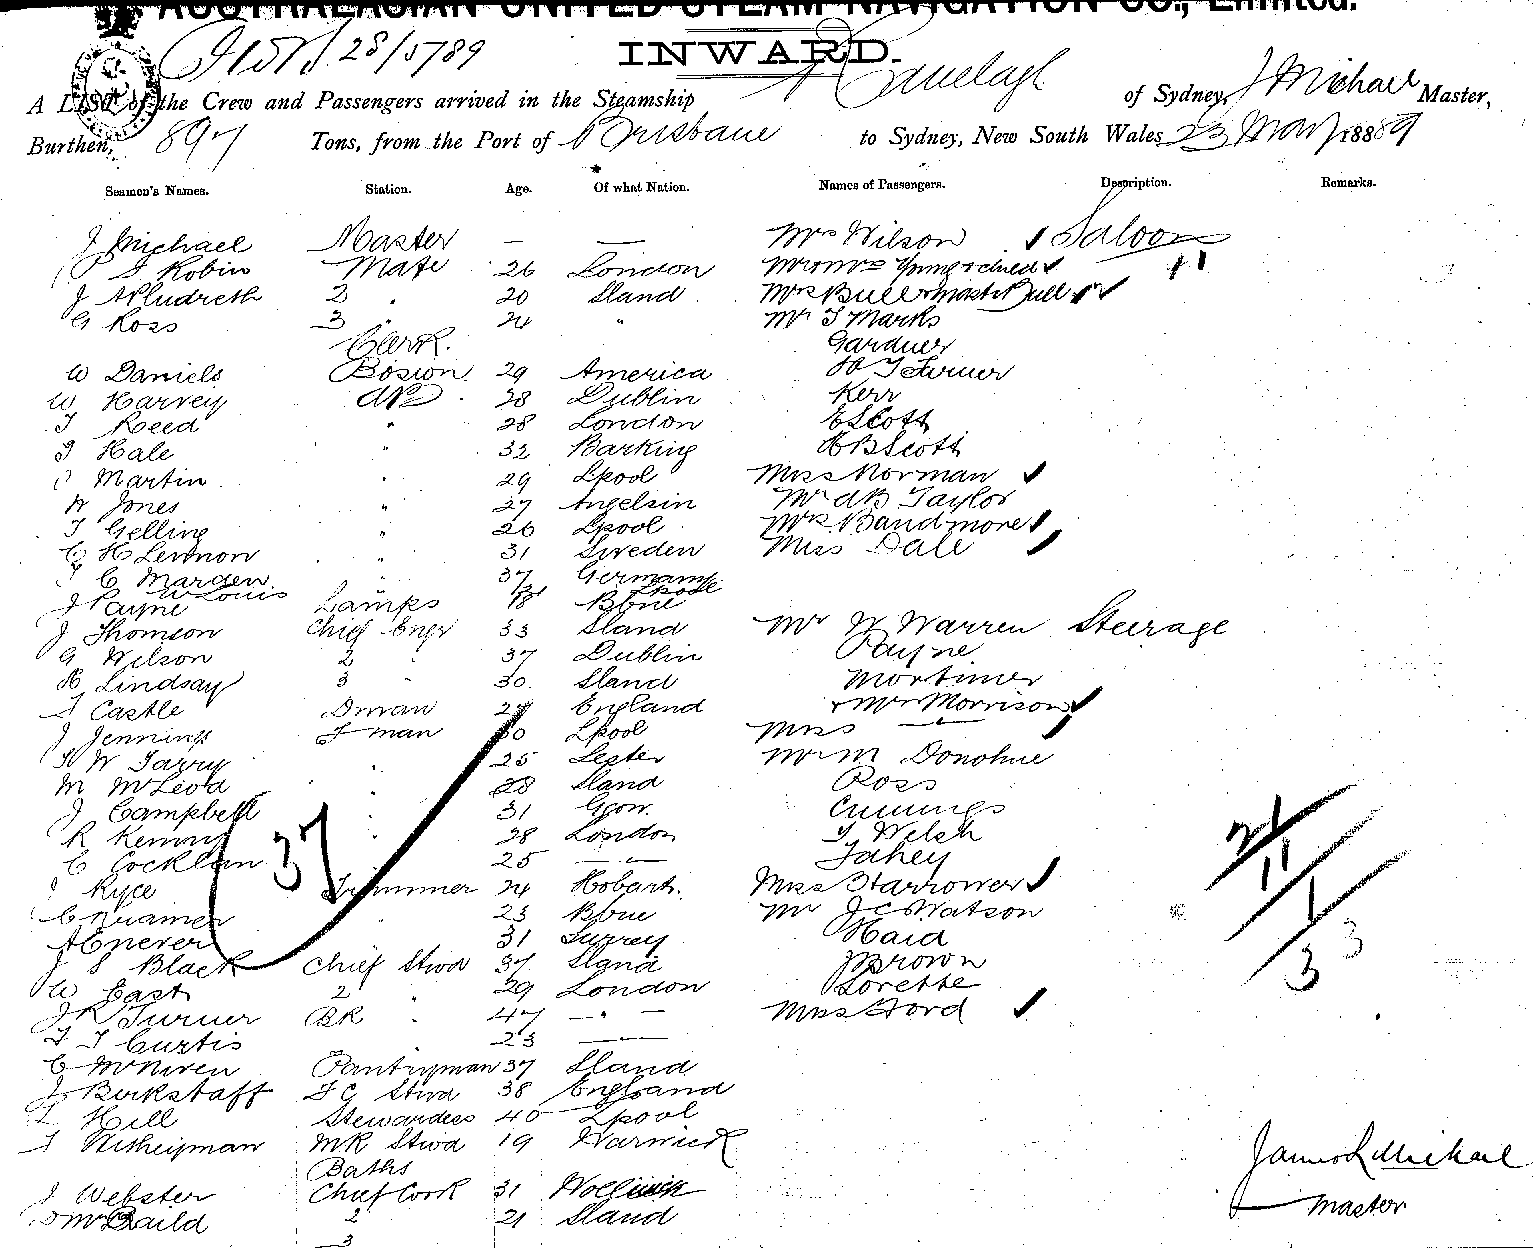 AUSTRALASIAN UNITED STEAM NAVIGATION CO., Limited.
28/5/89
INWARD.
A LIST of the Crew and Passengers arrived in the Steamship Ranelagh of Sydney, J Michael Master,
Burthen, 897 Tons, from the Port of Brisbane to Sydney, New South Wales 23 May 1889
Seamen's Names. Station. Age. Of what Nation. Names of Passengers. Description. Remarks.
J Michael Master — — Mrs Wilson Saloon
Robin Mate 26 London Mr & Mrs Young & child 11
J 2 " 20 Sland Mrs Bull & Mast Bull
G Ross 3 " 24 " Mr T Marks
Clerk. Gardner
W Daniels Bosion 29 America Turner
W Harvey AB 28 Dublin Kerr
T Reed " 28 London E Scott
Hale " 32 Barking B Scott
Martin " 29 Lpool Miss Norman
W Jones " 27 Mr AB Taylor
T Gelling " 26 Lpool Mrs Bandmore
C H Lennon " 31 Sweden Miss Dale
T C Marden " 37 Germany
W Louis Lpool
J Payne Lamps 18 Bbne
J Thomson Chief Engr 33 Sland Mr W Warren Steerage
G Wilson 2 " 37 Dublin Payne
R Lindsay 3 " 30 Sland Mortimer
Castle England & Mrs Morrison
J Jennings F man 30 Lpool Miss —"—
W Tarry " 25 Lester Mr M Donohue
M McLeod " 28 Sland Ross
J Campbell " 31 Gow. Cummings
R Kenny " 28 London T Welsh
C Cocklan 25 —"— Fahey
Ryce Trimmer 24 Hobart. Miss Harrower
C Kramer " 23 Bbne Mr J C Watson
31 Surrey Haid
J S Black Chief Stwd 37 Sland J Brown
W East 2 " 29 London Lorette
J R Turner BR " 47 —"— Miss Ford
T T Curtis 23 —
C McNiven Pantryman 37 Sland
J Birkstaff F C Stwd 38 England
Hill Stewardess 40 Lpool
T Witheyman MR Stwd 19 Warwick
Baths
J Webster Chief Cook 31
D McBaild 2 21 Sland
3
37
21
11
1
33
James R Michael
Master